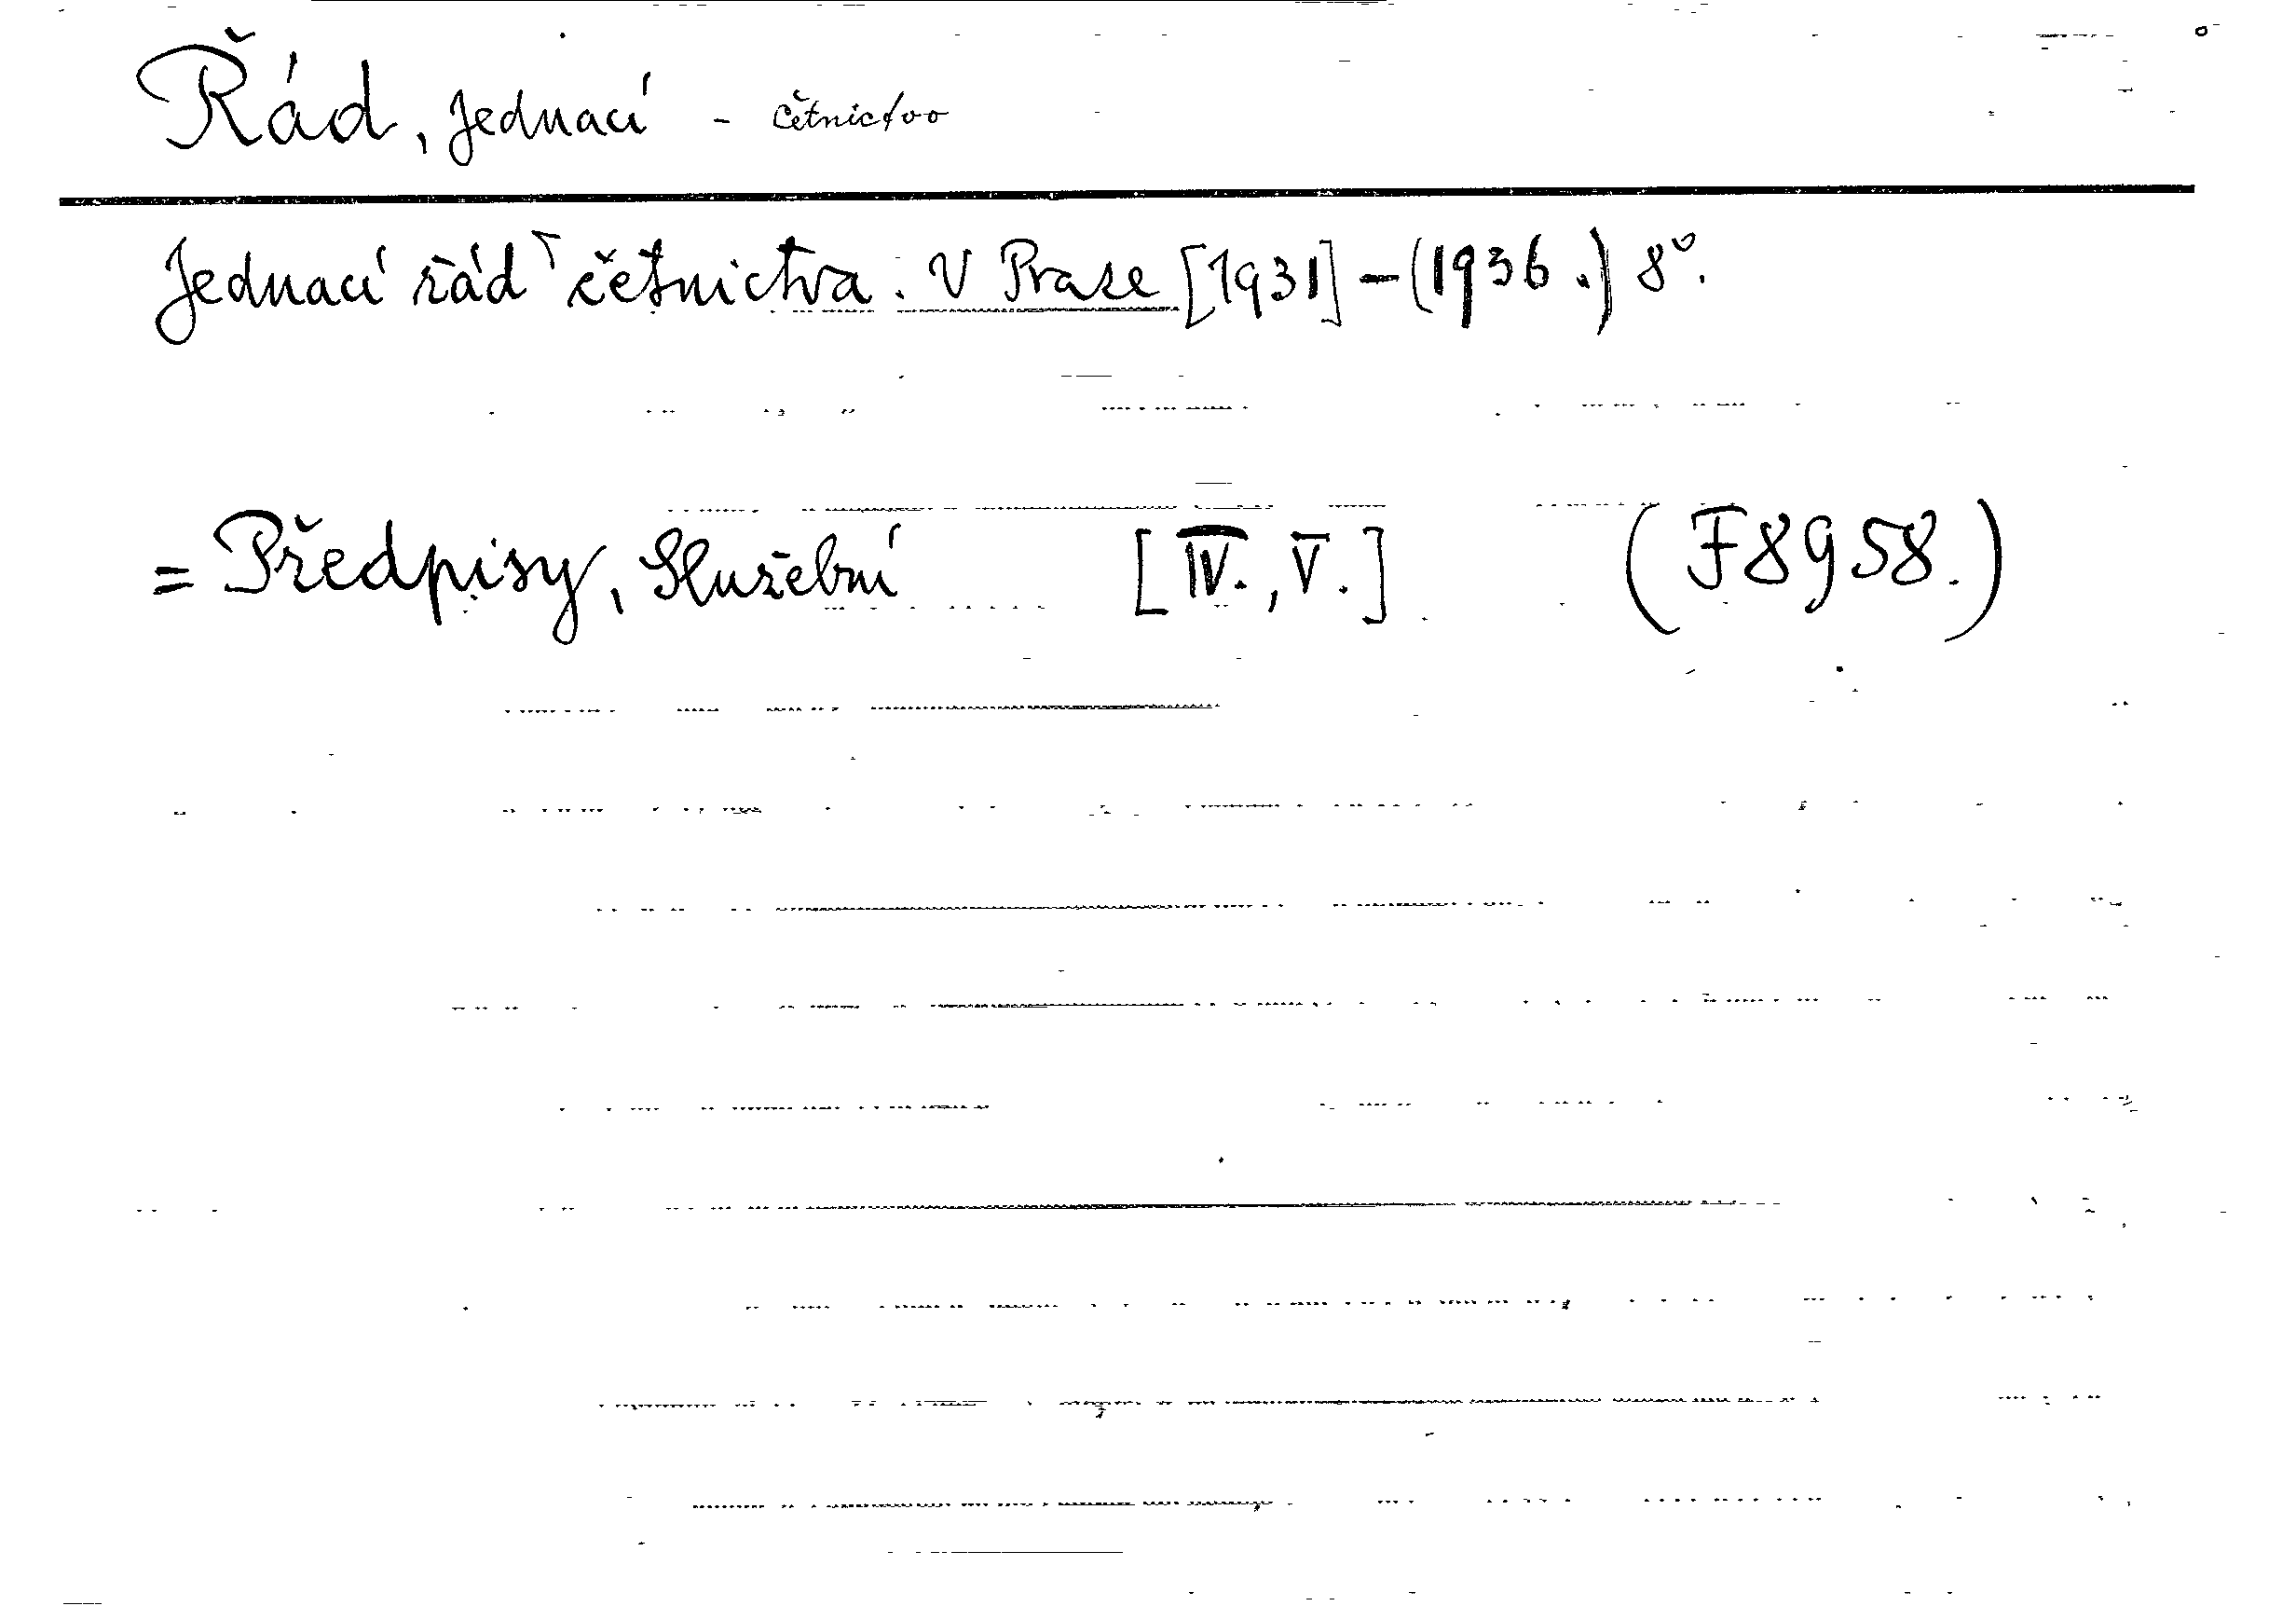 Řád, jednací - četnictvo
Jednací řád četnictva. V Praze [1931]-(1936.) 8°.
= Předpisy, Služební [IV., V.] (F8958.)